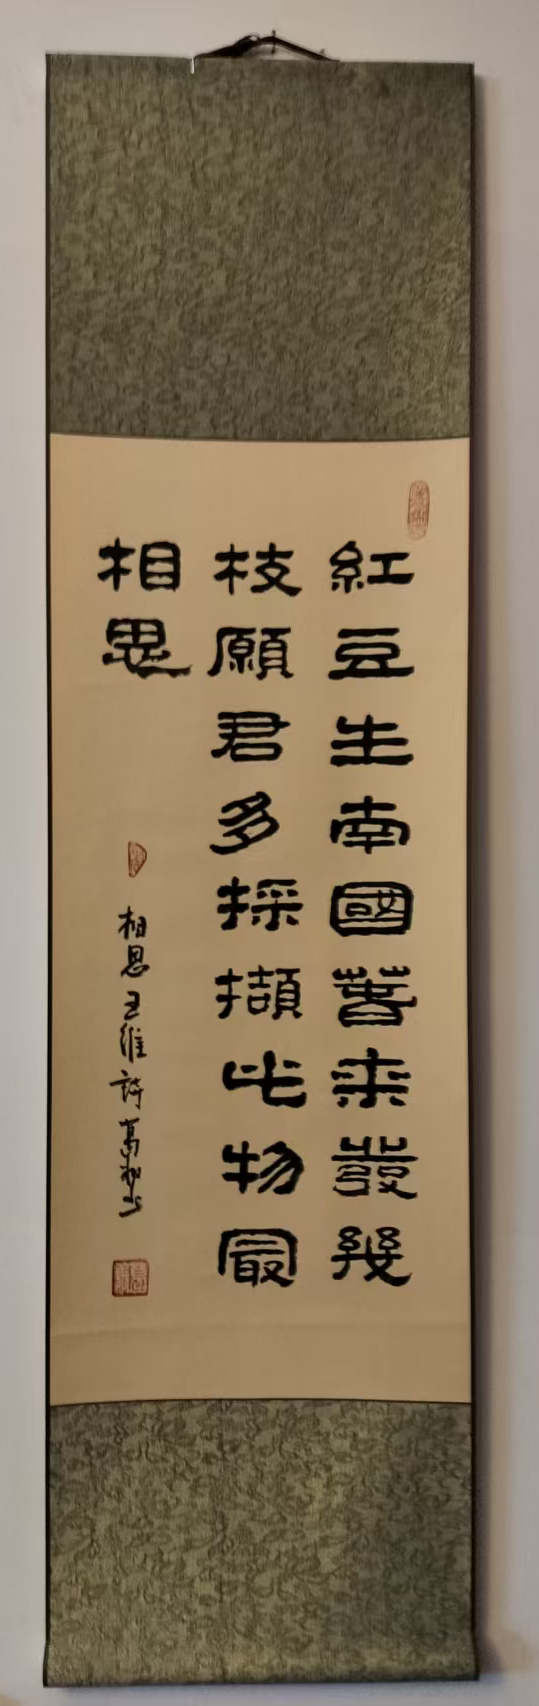 紅豆生南國春来發幾
枝願君多採擷此物最
相思
相思王維詩